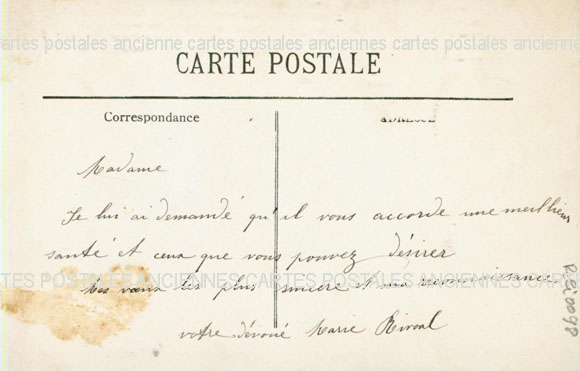 cartes postales ancienne cartes postales ancienne cartes postales anciennes
CARTE POSTALE
Correspondance
ADRESSE
Madame
Je lui ai demandé qu'il vous accorde une meillieur
santé et ceux que vous pouvez désirer
CARTES POSTALES ANCIENNES CARTES POSTALES ANCIENNES CARTES POSTALES
Mes vœux les plus sincère et ma reconnaissance
votre dévoué Marie Rivoal